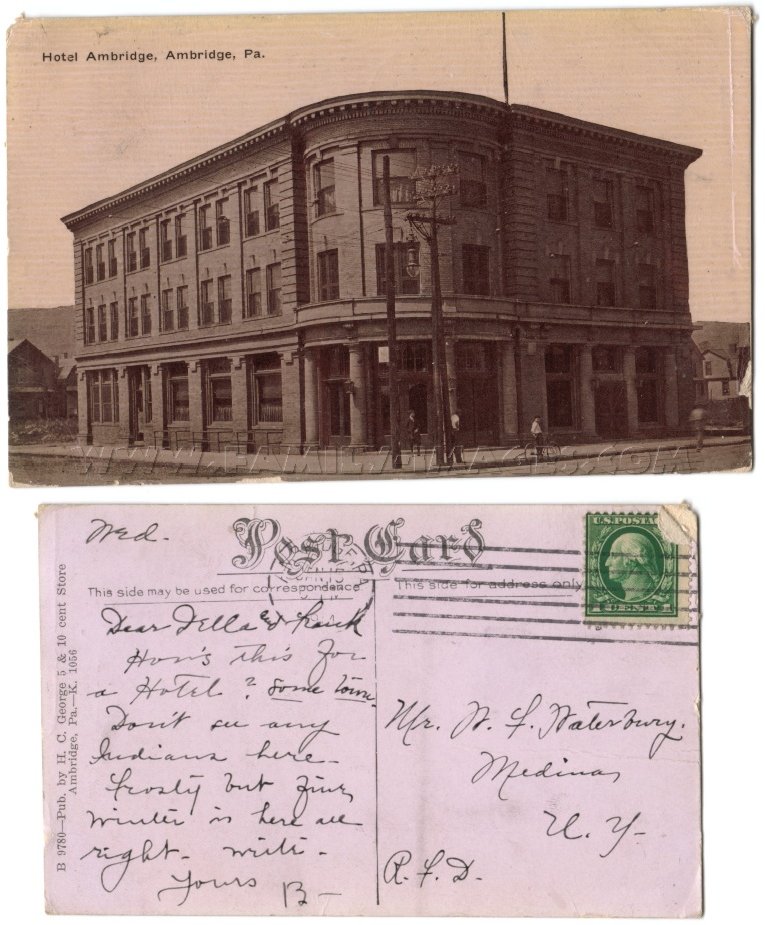 Hotel Ambridge, Ambridge, Pa.
WWW.FAMILY-IMAGES.COM
Wed.
Post Card
This side may be used for correspondence
This side for address only
U.S. POSTAGE
1 CENT 1
B 9780—Pub. by H. C. George 5 & 10 cent Store
Ambridge, Pa.—K. 1056
Dear Della and Frank
How's this for
a Hotel? Some town.
Don't see any
Indians here.
Frosty but fine,
Winter is here all
right. write.
Yours B—
Mr. W. F. Waterbury.
Medina,
N. Y.
R. F. D.